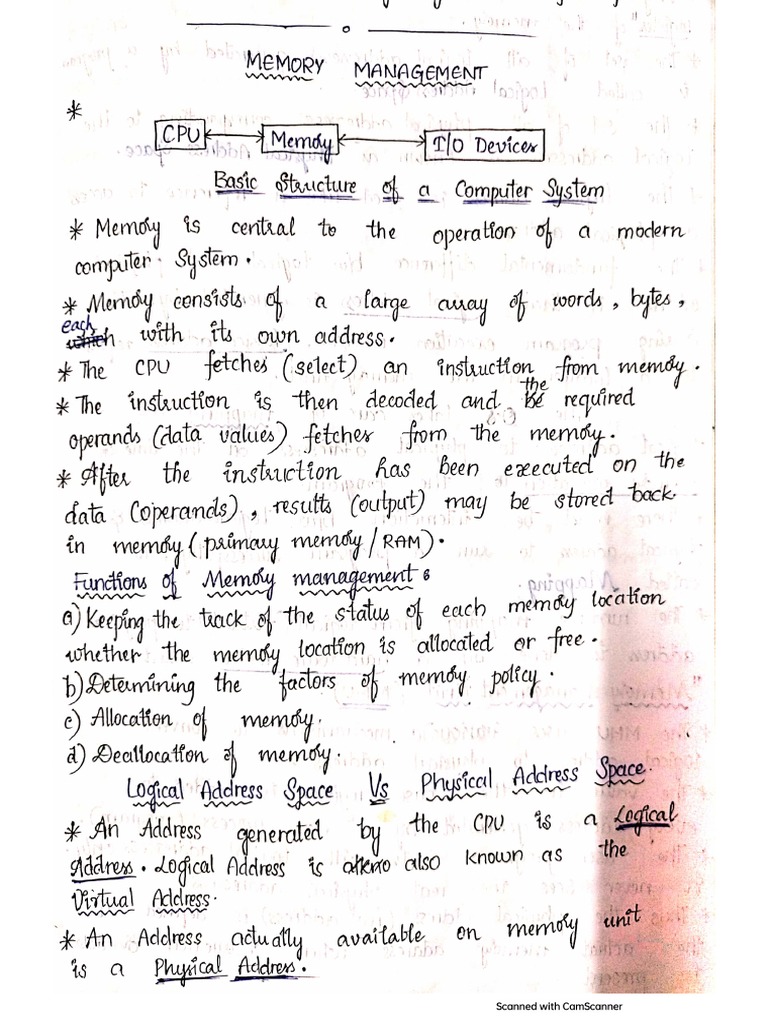 MEMORY MANAGEMENT
*
CPU Memory I/O Devices
Basic Structure of a Computer System
* Memory is central to the operation of a modern
computer System.
* Memory consists of a large array of words, bytes,
each with its own address.
* The CPU fetches (select) an instruction from memory.
* The instruction is then decoded and the required
operands (data values) fetches from the memory.
* After the instruction has been executed on the
data (operands), results (output) may be stored back
in memory (primary memory/RAM).
Functions of Memory management:
a) Keeping the track of the status of each memory location
whether the memory location is allocated or free.
b) Determining the factors of memory policy.
c) Allocation of memory.
d) Deallocation of memory.
Logical Address Space Vs Physical Address Space.
* An Address generated by the CPU is a Logical
Address. Logical Address is also known as the
Virtual Address.
* An Address actually available on memory unit
is a Physical Address.
Scanned with CamScanner